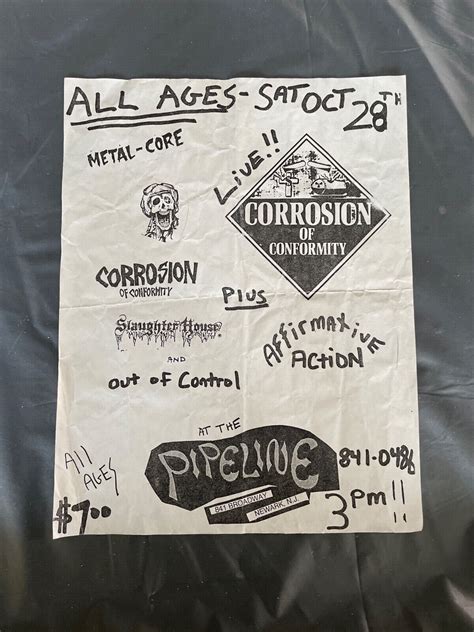 ALL AGES - SAT OCT 28TH
METAL-CORE
LIVE!!
CORROSION
OF
CONFORMITY
CORROSION
OF CONFORMITY
Plus
Slaughter House
Affirmative
ACTION
AND
OUT OF CONTROL
AT THE
PIPELINE
841 BROADWAY
NEWARK, N.J.
841-0486
3 PM!!
All
AGES
$7.00